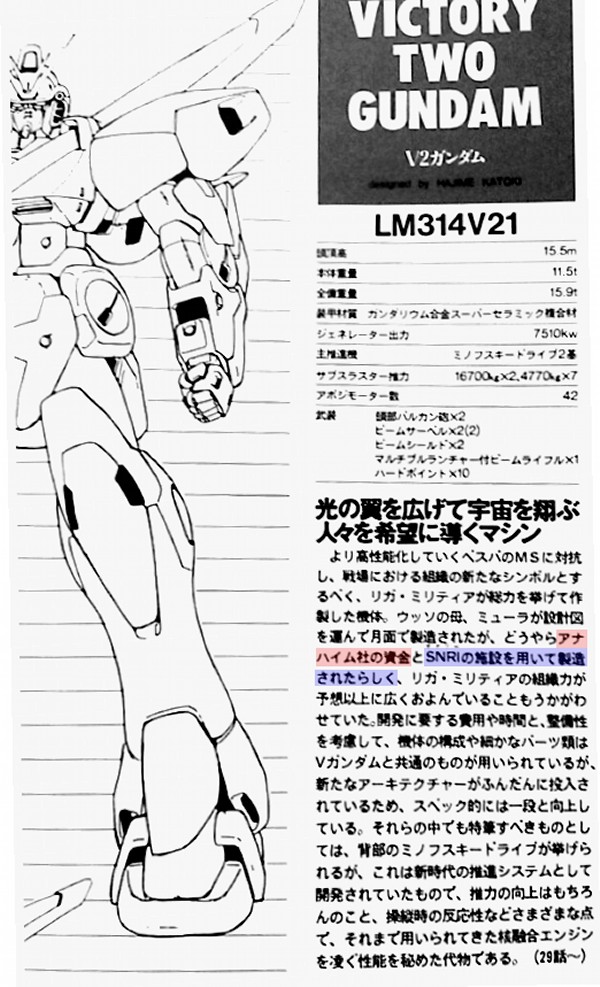 VICTORY
TWO
GUNDAM
V2ガンダム
designed by HAJIME KATOKI
LM314V21
頭頂高 15.5m
本体重量 11.5t
全備重量 15.9t
装甲材質 ガンダリウム合金スーパーセラミック複合材
ジェネレーター出力 7510kw
主推進機 ミノフスキードライブ2基
サブスラスター推力 16700kg×2,4770kg×7
アポジモーター数 42
武装 頭部バルカン砲×2
ビームサーベル×2(2)
ビームシールド×2
マルチプルランチャー付ビームライフル×1
ハードポイント×10
光の翼を広げて宇宙を翔ぶ
人々を希望に導くマシン
より高性能化していくベスパのMSに対抗
し、戦場における組織の新たなシンボルとす
るべく、リガ・ミリティアが総力を挙げて作
製した機体。ウッソの母、ミューラが設計図
を運んで月面で製造されたが、どうやらアナ
ハイム社の資金とSNRIの施設を用いて製造
されたらしく、リガ・ミリティアの組織力が
予想以上に広くおよんでいることもうかがわ
せていた。開発に要する費用や時間と、整備性
を考慮して、機体の構成や細かなパーツ類は
Vガンダムと共通のものが用いられているが、
新たなアーキテクチャーがふんだんに投入さ
れているため、スペック的には一段と向上し
ている。それらの中でも特筆すべきものとし
ては、背部のミノフスキードライブが挙げら
れるが、これは新時代の推進システムとして
開発されていたもので、推力の向上はもちろ
んのこと、操縦時の反応性などさまざまな点
で、それまで用いられてきた核融合エンジン
を凌ぐ性能を秘めた代物である。(29話〜)